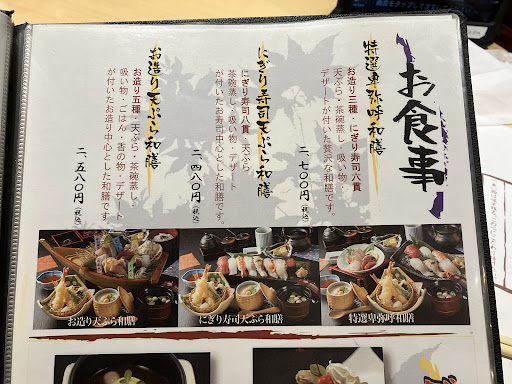 お食事
特選卑弥呼和膳
お造り三種・にぎり寿司六貫
天ぷら・茶碗蒸し・吸い物・
デザートが付いた贅沢な和膳です。
二、七〇〇円（税込）
にぎり寿司天ぷら和膳
にぎり寿司八貫・天ぷら
茶碗蒸し・吸い物・デザート
が付いたお寿司中心とした和膳です。
二、四八〇円（税込）
お造り天ぷら和膳
お造り五種・天ぷら・茶碗蒸し・
吸い物・ごはん・香の物・デザート
が付いたお造り中心とした和膳です。
二、五八〇円（税込）
お造り天ぷら和膳
にぎり寿司天ぷら和膳
特選卑弥呼和膳